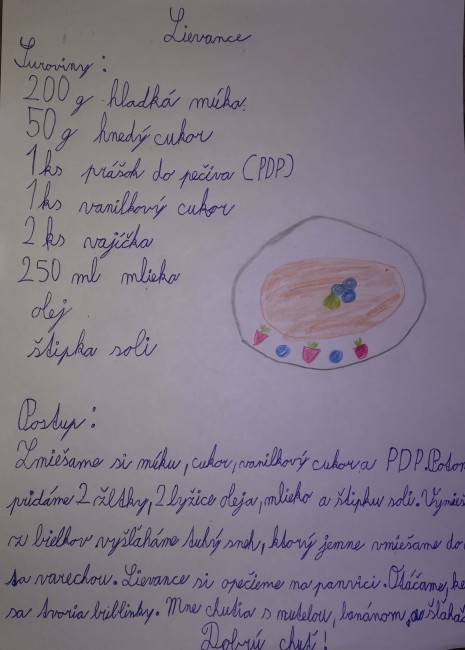 Lievance
Suroviny:
200 g hladká múka.
50 g hnedý cukor
1 ks prášok do pečiva (PDP)
1 ks vanilkový cukor
2 ks vajíčka
250 ml mlieka
olej
štipka soli
Postup:
Zmiešame si múku, cukor, vanilkový cukor a PDP. Potom
pridáme 2 žĺtky, 2 lyžice oleja, mlieko a štipku soli. Vymieš
z bielkov vyšľaháme tuhý sneh, ktorý jemne vmiešame do
ta varechou. Lievance si opečieme na panvici. Otáčame, ke
sa tvoria bublinky. Mne chutia s nutelou, banánom, a šľahač
Dobrú chuť!